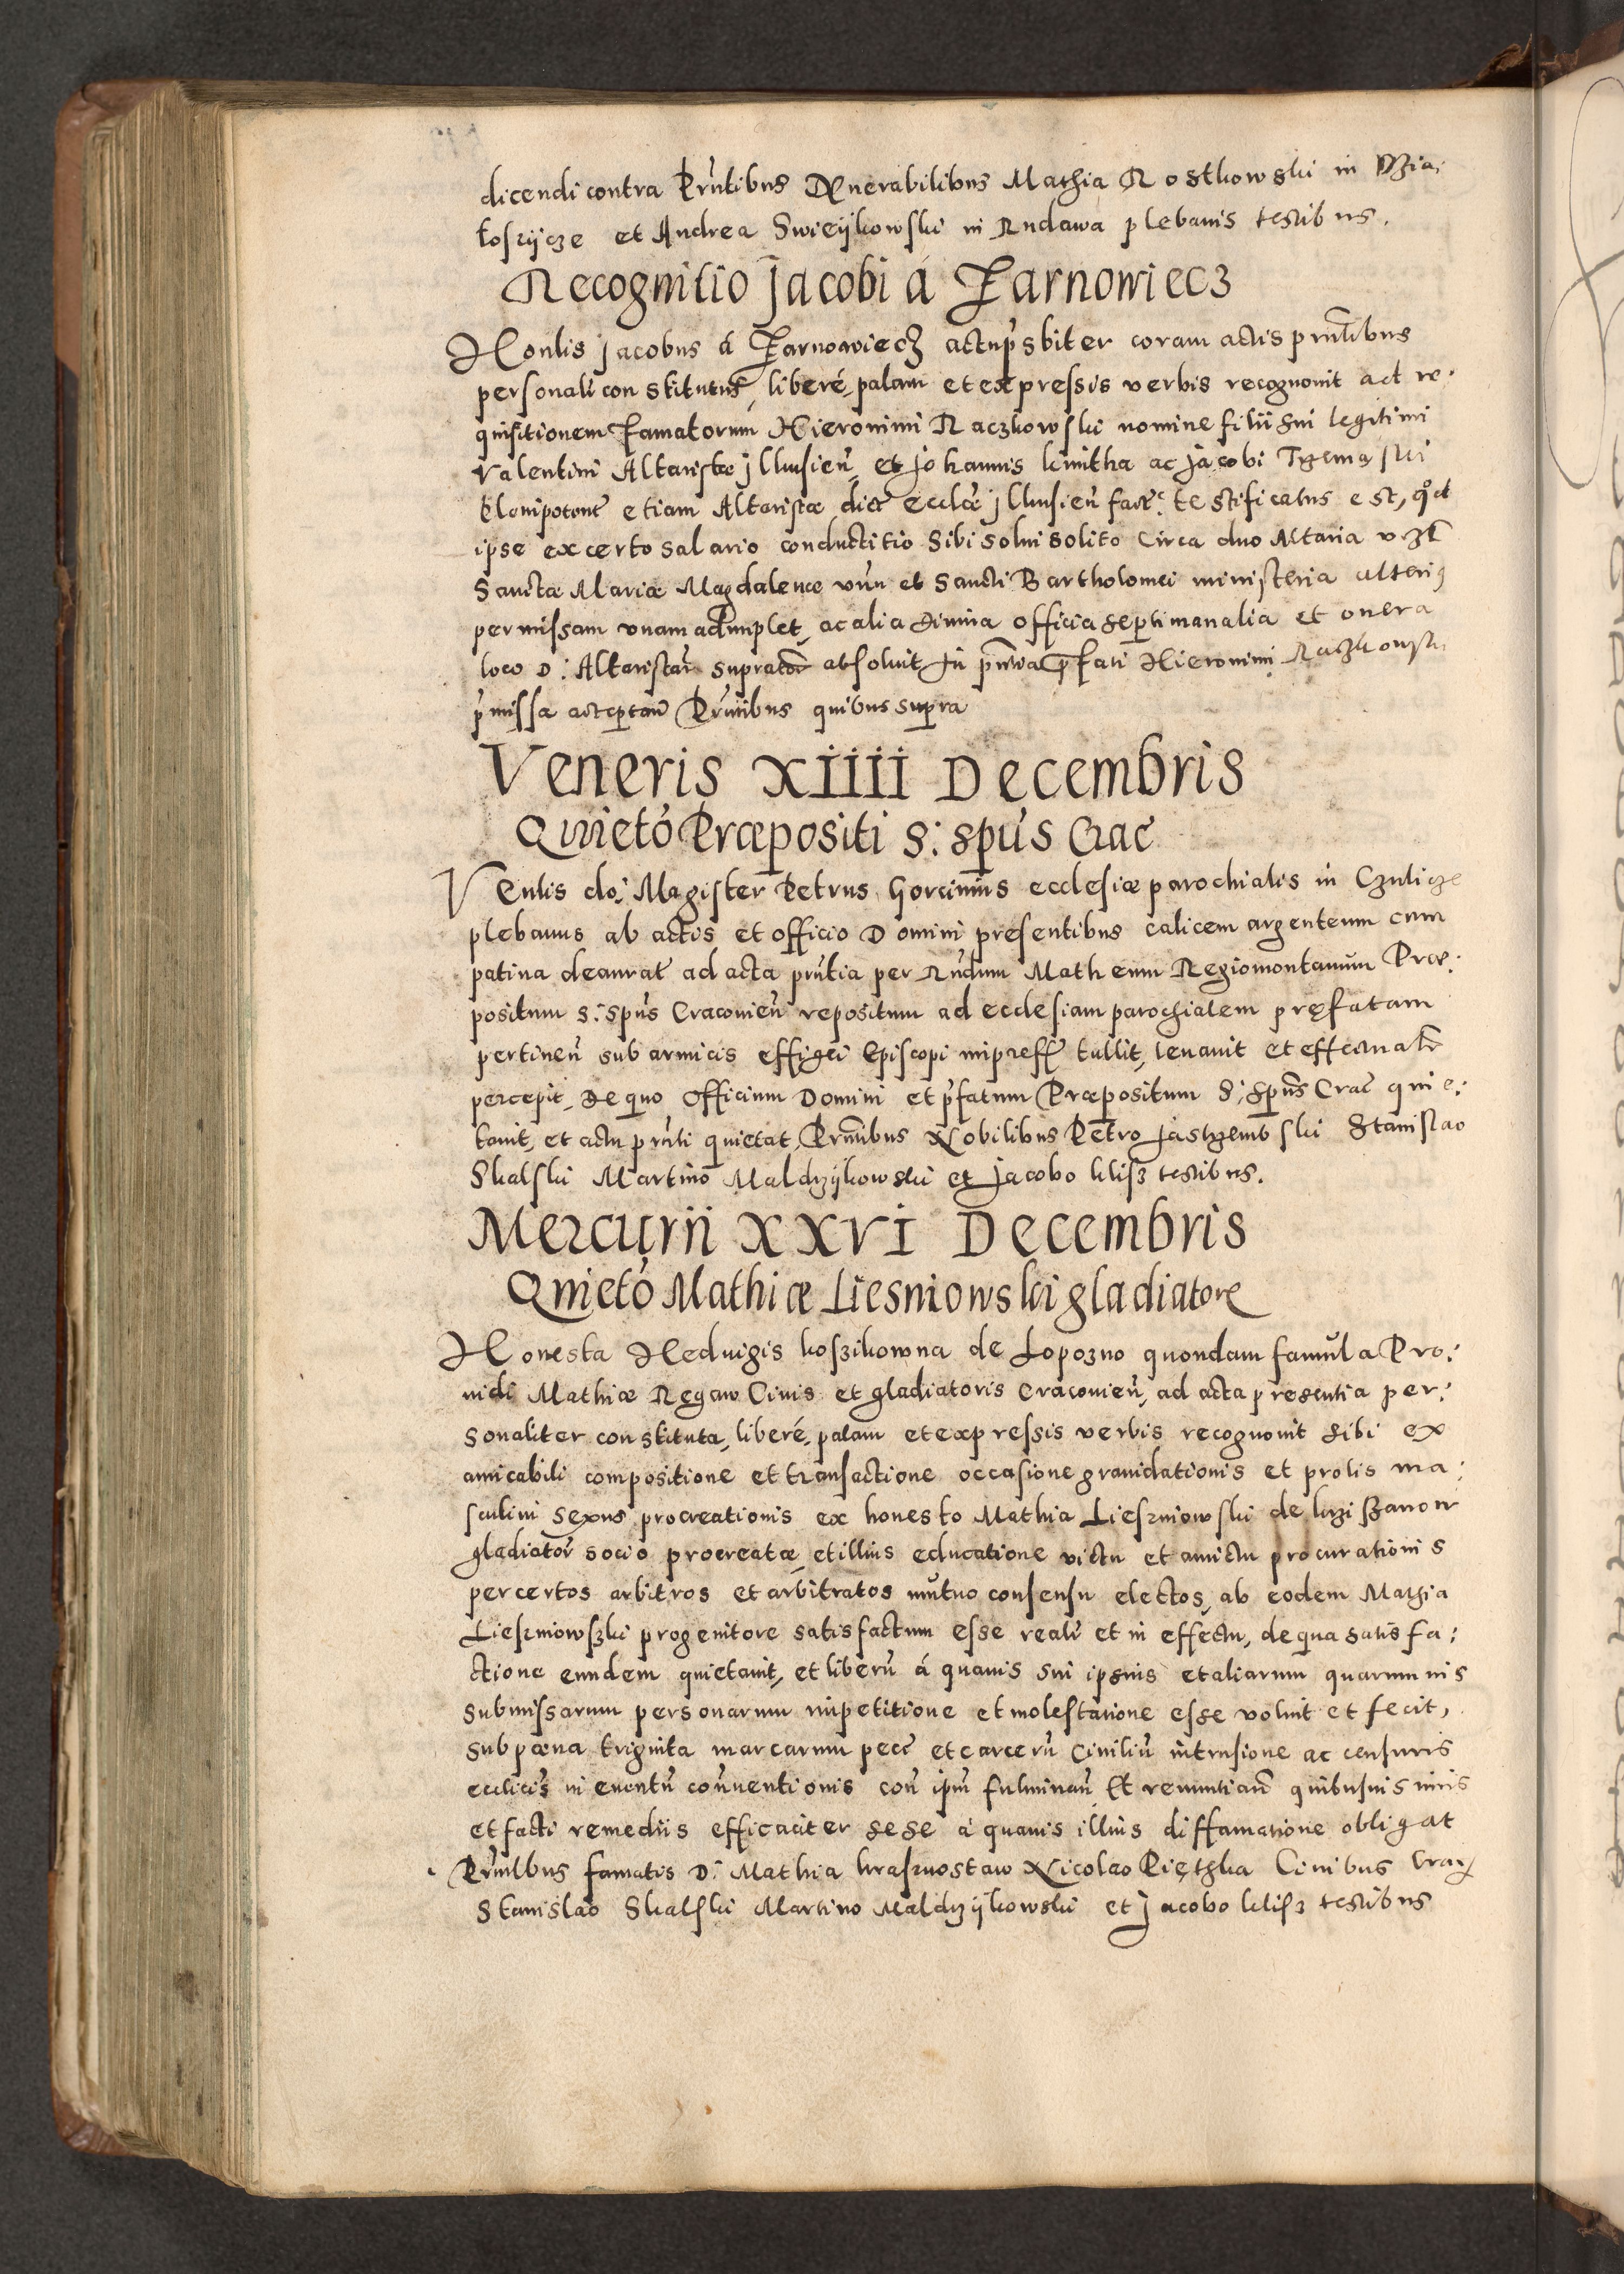 dicendi contra Pñtibus Venerabilibus Mathia Rostkowski in Dzia:
loszijcze et Andrea Swieijkowski in Rudawa plebanis testibus.
Recognitio Jacobi á Zarnowiecz
Honlis Jacobus á Zarnowiecz actup̃sbiter coram actis pñtibus
personalr̃ constitutus, liberé, palam et expressis verbis recognouit ad re:
quisitionem famatorum Hieronimi Raczkowski nomine filii sui legitimi
Valentini Altaristæ Jllkusien̄, et Johannis kmitha ac Jacobi
plenipotent̃ etiam Altaristæ dict̃ ecclæ Jllkusien̄ fact: testificatus est, qd
ipse ex certo salario conductitio sibi solui solito circa duo Altaria vzt
Sanctæ Mariæ Magdalenæ vnū et Sancti Bartholomei ministeria alterius
per missam vnam adimplet, ac alia diuina officia septimanalia et onera
loco D: Altaristar̃ supratõr absoluit In pñtia p̃fati Hieronimi Raczkowski
p̃missa acceptan̄ Pñtibus quibus supra
Veneris XIIII Decembris
Quietõ Præpositi S: Spũs Crac
Venlis do: Magister Petrus Gorcinius ecclesiæ parochialis in Czulicze
plebanus ab actis et officio Domini presentibus calicem argenteum cum
patina deaurat̃ ad acta pñtia per Rñdum Matheum Regiomontanum Præ:
positum S: Spũs Cracouien̄ repositum ad ecclesiam parochialem prefatam
pertinen̄ sub armicis effigei Episcopi impress̃ tullit, leuauit et effectualr̃
percepit, De quo Officium Domini et p̃fatum Præpositum S: Spũs Crac̃ quie:
tauit, et actu pñti quietat, Pñtibus Nobilibus Petro Jastrzembski Stanislao
Skalski Martino Maldrzijkowski et Jacobo klisz testibus.
Mercurii XXVI Decembris
Quietõ Mathiæ Liesniowski gladiatore
Honesta Heduigis koszikowna de Lopozno quondam famula Pro:
uidi Mathiæ Regaw Ciuis et gladiatoris Cracouien̄, ad acta presentia per:
sonaliter constituta, liberé, palam et expressis verbis recognouit sibi ex
amicabili compositione et transactione occasione grauidationis et prolis ma:
sculini sexus procreationis ex honesto Mathia Liesniowski de
gladiator̃ socio procreatæ, et illius educatione victu et amictu procurationis
per certos arbitros et arbitratos mutuo consensu electos, ab eodem Mathia
Liesniowszki progenitore satisfactum esse realr̃ et in effectu, de qua satisfa:
ctione eundem quietauit, et liberū á quauis sui ipsuis et aliarum quarumuis
submissarum personarum impetitione et molestatione esse voluit et fecit,
sub pœna triginta marcarum pec̃ et carcerū Ciuiliū intrusione ac censuris
ecclicis in euentū conuentionis con̄ ipm̄ fulminan̄ Et renuntian̄ quibusuis iuris
et facti remediis efficaciter sese á quauis illius diffamatione obligat
Pñtibus famatis D: Mathia krasnostaw Nicolao Ciuibus Crac̃
Stanislao Skalski Martino Maldrzijkowski et Jacobo klisz testibus